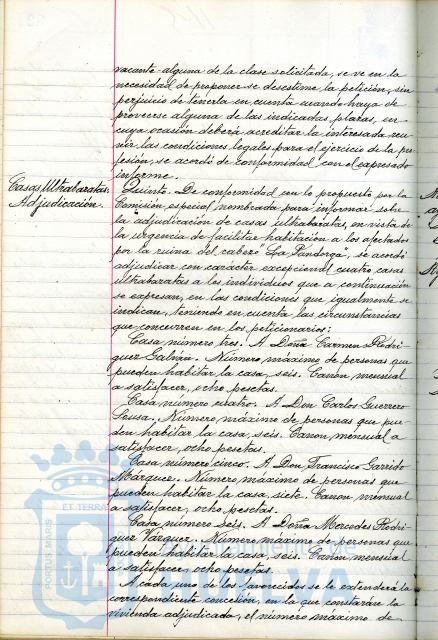 vacante alguna de la clase solicitada, se ve en la
necesidad de proponer se desestime la petición, sin
perjuicio de tenerla en cuenta cuando haya de
proveerse alguna de las indicadas plazas, en
cuya ocasión deberá acreditar la interesada reu-
nir las condiciones legales para el ejercicio de la pro-
fesión, se acordó de conformidad con el expresado
informe.
Casas Ultrabaratas.
Adjudicación.
Quinto. De conformidad con lo propuesto por la
Comisión especial nombrada para informar sobre
la adjudicación de casas ultrabaratas, en vista de
la urgencia de facilitar habitación a los afectados
por la ruina del cabezo "La Pandorga", se acordó
adjudicar con carácter excepcional cuatro casas
ultrabaratas a los individuos que a continuación
se expresan, en las condiciones que igualmente se
indican, teniendo en cuenta las circunstancias
que concurren en los peticionarios:
Casa número tres. A Doña Carmen Rodrí-
guez Galván. Número máximo de personas que
pueden habitar la casa, seis. Canon mensual
a satisfacer, ocho pesetas.
Casa número cuatro. A Don Carlos Guerrero
Sousa. Número máximo de personas que pue-
den habitar la casa, seis. Canon mensual a
satisfacer, ocho pesetas.
Casa número cinco. A Don Francisco Garrido
Márquez. Número máximo de personas que
pueden habitar la casa, siete. Canon mensual
a satisfacer, ocho pesetas.
Casa número seis. A Doña Mercedes Rodrí-
guez Vázquez. Número máximo de personas que
pueden habitar la casa, seis. Canon mensual
a satisfacer, ocho pesetas.
A cada uno de los favorecidos se le extenderá la
correspondiente concesión, en la que constarán la
vivienda adjudicada, el número máximo de
PORTUS MARIS
ET TERRA